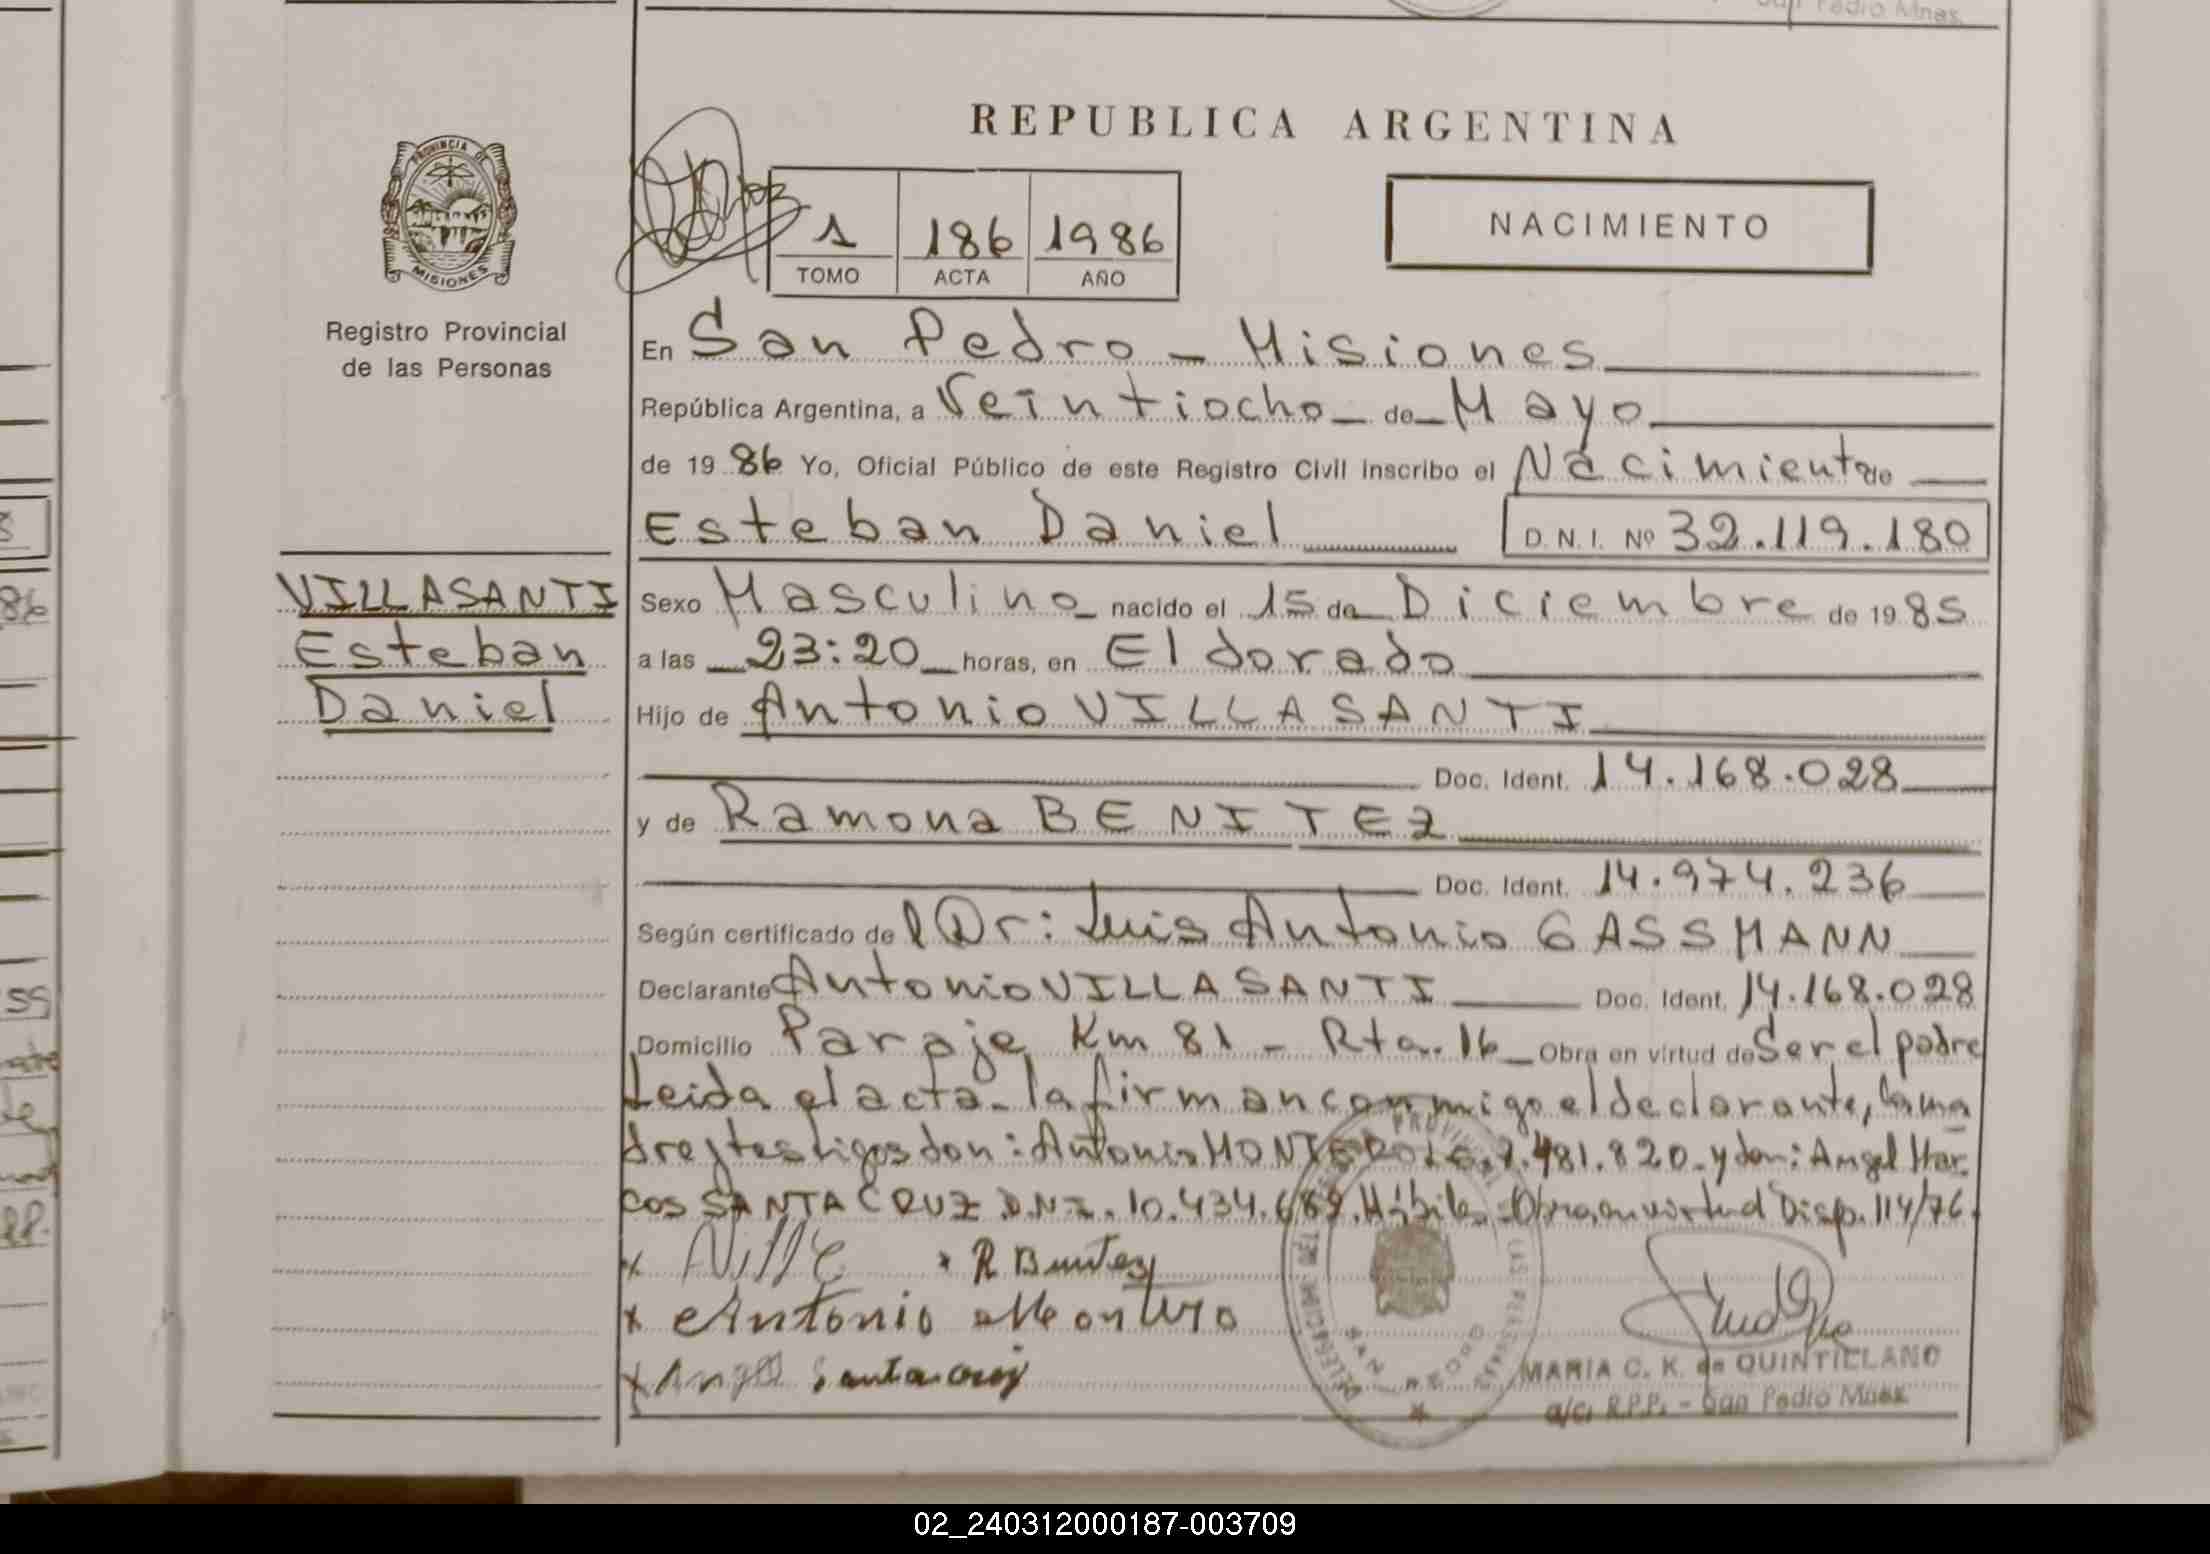 San Pedro Mnes.
REPUBLICA ARGENTINA
PROVINCIA DE
MISIONES
Registro Provincial
de las Personas
1 186 1986
TOMO ACTA AÑO
NACIMIENTO
En San Pedro - Misiones
República Argentina, a Veintiocho de Mayo
de 19 86 Yo, Oficial Público de este Registro Civil inscribo el Nacimiento de
Esteban Daniel D.N.I. Nº 32.119.180
VILLASANTI
Esteban
Daniel
Sexo Masculino nacido el 15 de Diciembre de 19 85
a las 23:20 horas, en Eldorado
Hijo de Antonio VILLASANTI
Doc. Ident. 14.168.028
y de Ramona BENITEZ
Doc. Ident. 14.974.236
Según certificado de l Dr: Luis Antonio GASSMANN
Declarante Antonio VILLASANTI Doc. Ident. 14.168.028
Domicilio Paraje Km 81 - Rta. 16 Obra en virtud de Ser el padre
Leida el acta - la firman conmigo el declarante, la ma
dre y testigos don: Antonio MONTERO L.E. 7.481.820 - y don: Angel Mar
cos SANTA CRUZ D.N.I. 10.434.689. Hábiles - Obra en virtud Disp. 114/76.
x x R Benitez
x Antonio Montero
x Angel Santa cruz
MARIA C. K. de QUINTILLANO
a/c. R.P.P. - San Pedro Mnes.
02_240312000187-003709